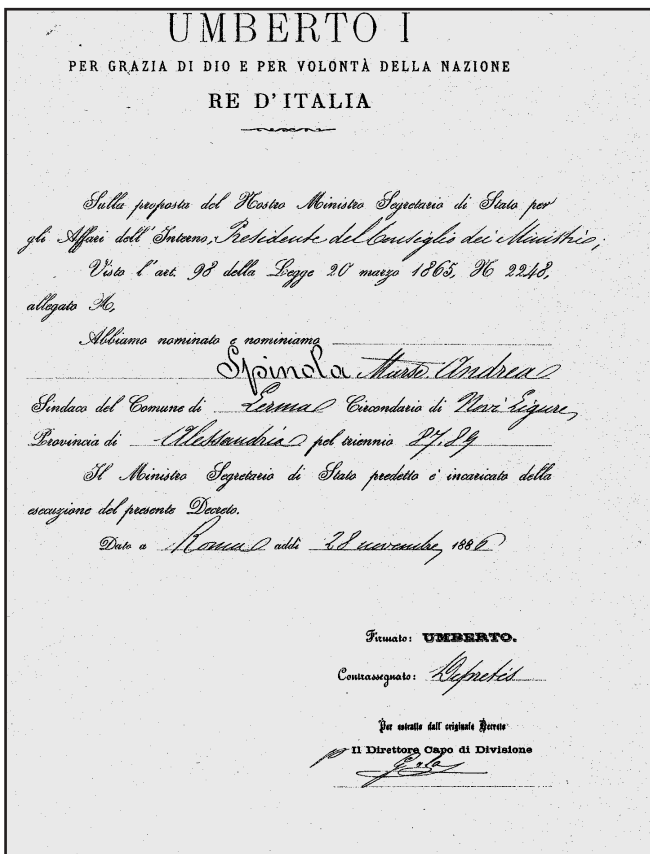 UMBERTO I
PER GRAZIA DI DIO E PER VOLONTÀ DELLA NAZIONE
RE D'ITALIA
Sulla proposta del Nostro Ministro Segretario di Stato per
gli Affari dell'Interno, Presidente del Consiglio dei Ministri;
Visto l'art. 98 della Legge 20 marzo 1865, N 2248,
allegato A,
Abbiamo nominato e nominiamo
Spinola Andrea
Sindaco del Comune di Lerma Circondario di Novi Ligure,
Provincia di Alessandria pel triennio 87.89
Il Ministro Segretario di Stato predetto è incaricato della
esecuzione del presente Decreto.
Dato a Roma addì 28 novembre 1886
Firmato: UMBERTO.
Contrassegnato: Depretis
Per estratto dall'originale Decreto
Il Direttore Capo di Divisione